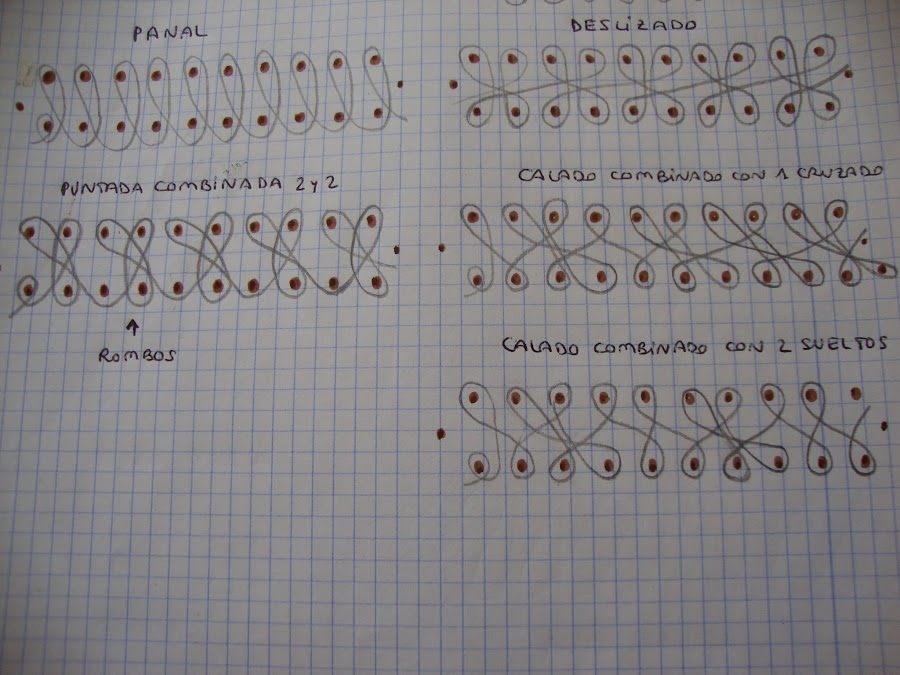 PANAL
DESLIZADO
PUNTADA COMBINADA 2 y 2
CALADO COMBINADO CON 1 CRUZADO
ROMBOS
CALADO COMBINADO CON 2 SUELTOS